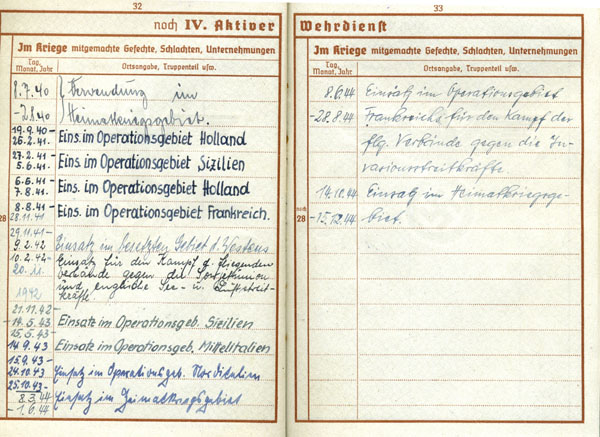 32
noch IV. Aktiver
Im Kriege mitgemachte Gefechte, Schlachten, Unternehmungen
Tag, Monat, Jahr
Ortsangabe, Truppenteil usw.
8.7.40 Verwendung im
-2.8.40 Heimatkriegsgebiet.
19.9.40-
26.2.41. Eins. im Operationsgebiet Holland
27.2.41-
5.6.41. Eins. im Operationsgebiet Sizilien
6.6.41-
7.8.41. Eins. im Operationsgebiet Holland
8.8.41-
28.11.41 Eins. im Operationsgebiet Frankreich.
28
29.11.41-
9.2.42 Einsatz im besetzten Gebiet d. Westens
10.2.42- Einsatz für den Kampf d. fliegenden
20.11. verbände gegen die
1942 und englische See- u. Luftstreit-
kräfte.
21.11.42-
-14.5.43 Einsatz im Operationsgeb. Sicilien
25.5.43-
14.9.43 Einsatz im Operationsgeb. Mittelitalien
15.9.43-
24.10.43 Einsatz im Operationsgeb. Norditalien
25.10.43-
8.3.44 Einsatz im Heimatkriegsgebiet
-1.6.44
33
Wehrdienst
Im Kriege mitgemachte Gefechte, Schlachten, Unternehmungen
Tag, Monat, Jahr
Ortsangabe, Truppenteil usw.
8.6.44 Einsatz im Operationsgebiet
-28.8.44 Frankreichs für den Kampf der
flg. Verbände gegen die In-
vasionsstreitkräfte
14.10.44 Einsatz im Heimatkriegsge-
noch
28 -15.12.44 biet.